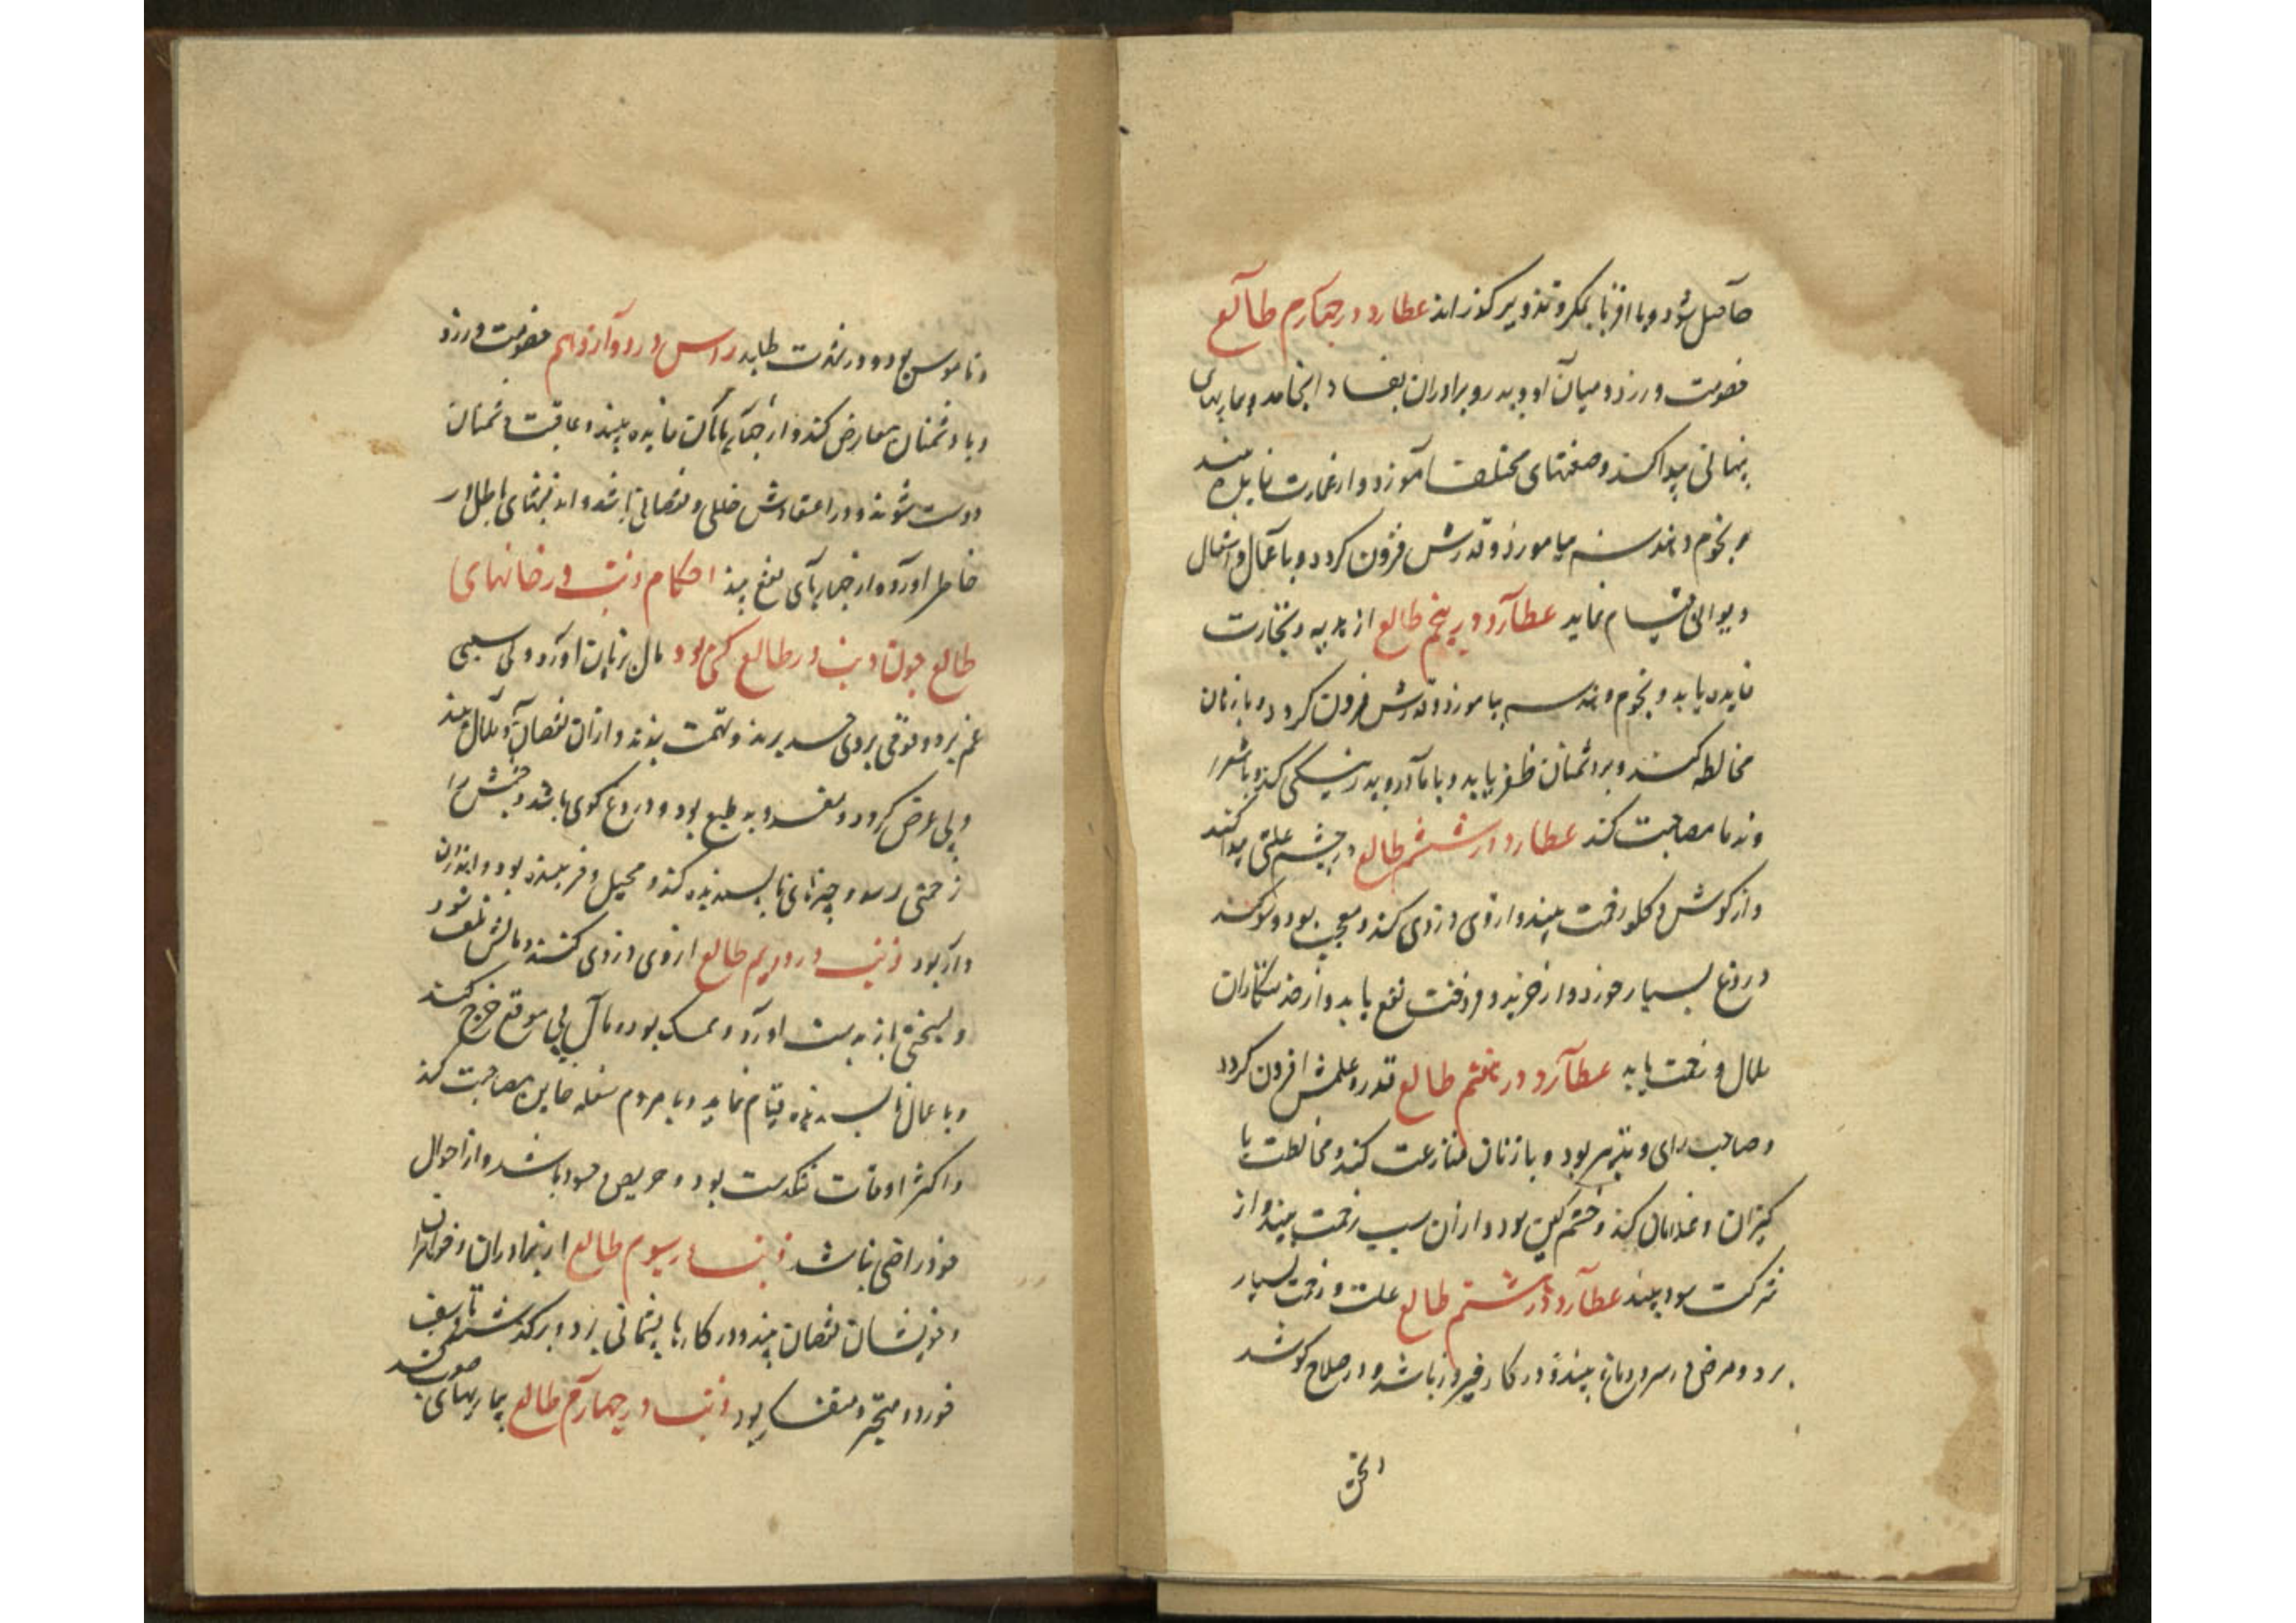 حاصل شود و با اقربا بمکر و تذویر کذراند عطارد در چهارم طالع
خصومت ورزد و میان او و پدر و برادران بفساد انجامد و بیماریهای
پنهانی پیدا کند و صنعتهای مختلف آموزد و از عمارت فایده بیند
و نجوم و هندسه بیاموزد و قدرش فزون کردد و با عمال و اشغال
دیوانی قیام نماید عطارد در پنجم طالع از هدیه و تجارت
فایده یابد و نجوم و هندسه بیاموزد و قدرش فزون کردد و با زنان
مخالطه کند و بر دشمنان ظفر یابد و با مادر و پدر نیکی کند و با شعرا
و ندما مصاحبت کند عطارد در ششم طالع در چشم علتی پیدا کند
و از کوش و کلو زحمت بیند و از وی دزدی کند و معجب بود و سوکند
دروغ بسیار خورد و از خرید و فروخت نفع یابد و از خدمتکاران
ملال و زحمت یابد عطارد در هفتم طالع قدر و علمش افزون کردد
و صاحب رای و تدبیر بود و با زنان منازعت کند و مخالطت با
کنیزان و غلامان کند و خشم کین بود و از آن سبب زحمت بیند و از
شرکت سود بیند عطارد در هشتم طالع علت و زحمت بسیار
برد و مرض در سر و دماغ بیند و در کار فیروز باشد و در صلاح کوشد
و ناموس بود و در ندرت طلبد راس در دوازدهم خصومت ورزد
و با دشمنان معارض کند و از چهارپایان فایده بیند و عاقبت دشمنان
دوست شوند و در اعتقادش خللی و نقصانی باشد و اندیشهای باطل در
خاطر آورد و از چهارپای نفع بیند احکام ذنب در خانهای
طالع چون ذنب در طالع کسی بود مال بزیان آورد و بی سببی
غم برد و قومی بر وی حسد برند و تهمت نهند و از آن نقصان و ملال بیند
و بی عرض کردد و مفسد و بد طبع بود و دروغ کوی باشد و چشمش را
زحمتی رسد و چیزهای ناپسندیده کند و محیل و فریبنده بود و
بود ذنب در دویم طالع از وی دزدی کنند و مالش تلف شود
و بسختی باز بدست آورد و ممسک بود و مال بی موقع خرج کند
و با عمال ناپسندیده قیام نماید و با مردم سفله مصاحبت کند
و اکثر اوقات تنکدست بود و حریص و حسود باشد و از احوال
خود راضی نباشد ذنب در سیوم طالع از برادران و خواهران
و خویشان نقصان بیند و در کارها پشیمانی برد و بر کذشته تاسف
خورد و متحیر و متفکر بود ذنب در چهارم طالع بیماریهای صعب کشد